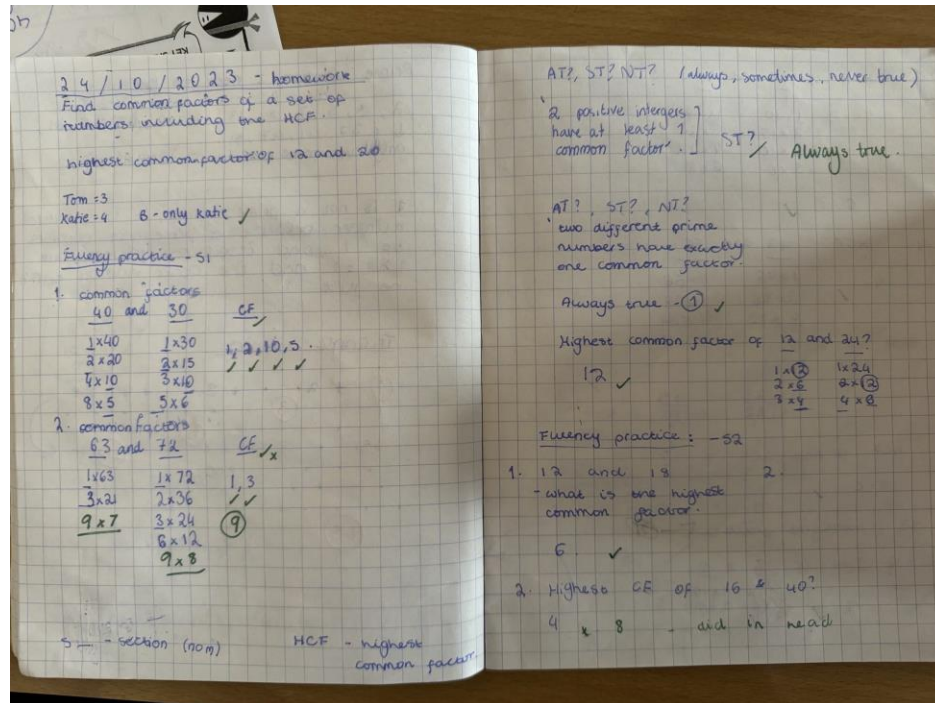 24/10/2023 - homework
Find common factors of a set of
numbers including the HCF.
highest common factor of 12 and 20
Tom = 3
Katie = 4 B - only Katie ✓
Fluency practice - S1
1. common factors
40 and 30 CF ✓
1x40 1x30 1, 2, 10, 5.
2x20 2x15 ✓ ✓ ✓ ✓
4x10 3x10
8x5 5x6
2. common factors
63 and 72 CF ✓ x
1x63 1x72 1, 3
3x21 2x36 ✓ ✓
9x7 3x24 9
6x12
9x8
S__ - section (nom) HCF - highest
common factor.
AT?, ST? NT? (always, sometimes, never true)
'2 positive intergers
have at least 1 ST? / Always true.
common factor'.
AT?, ST?, NT?
'two different prime
numbers have exactly
one common factor.
Always true - 1 ✓
Highest common factor of 12 and 24?
12 ✓ 1x12 1x24
2x6 2x12
3x4 4x6
Fluency practice: - S2
1. 12 and 18 2.
- what is the highest
common factor.
6. ✓
2. Highest CF of 16 & 40?
4 x 8 - did in head